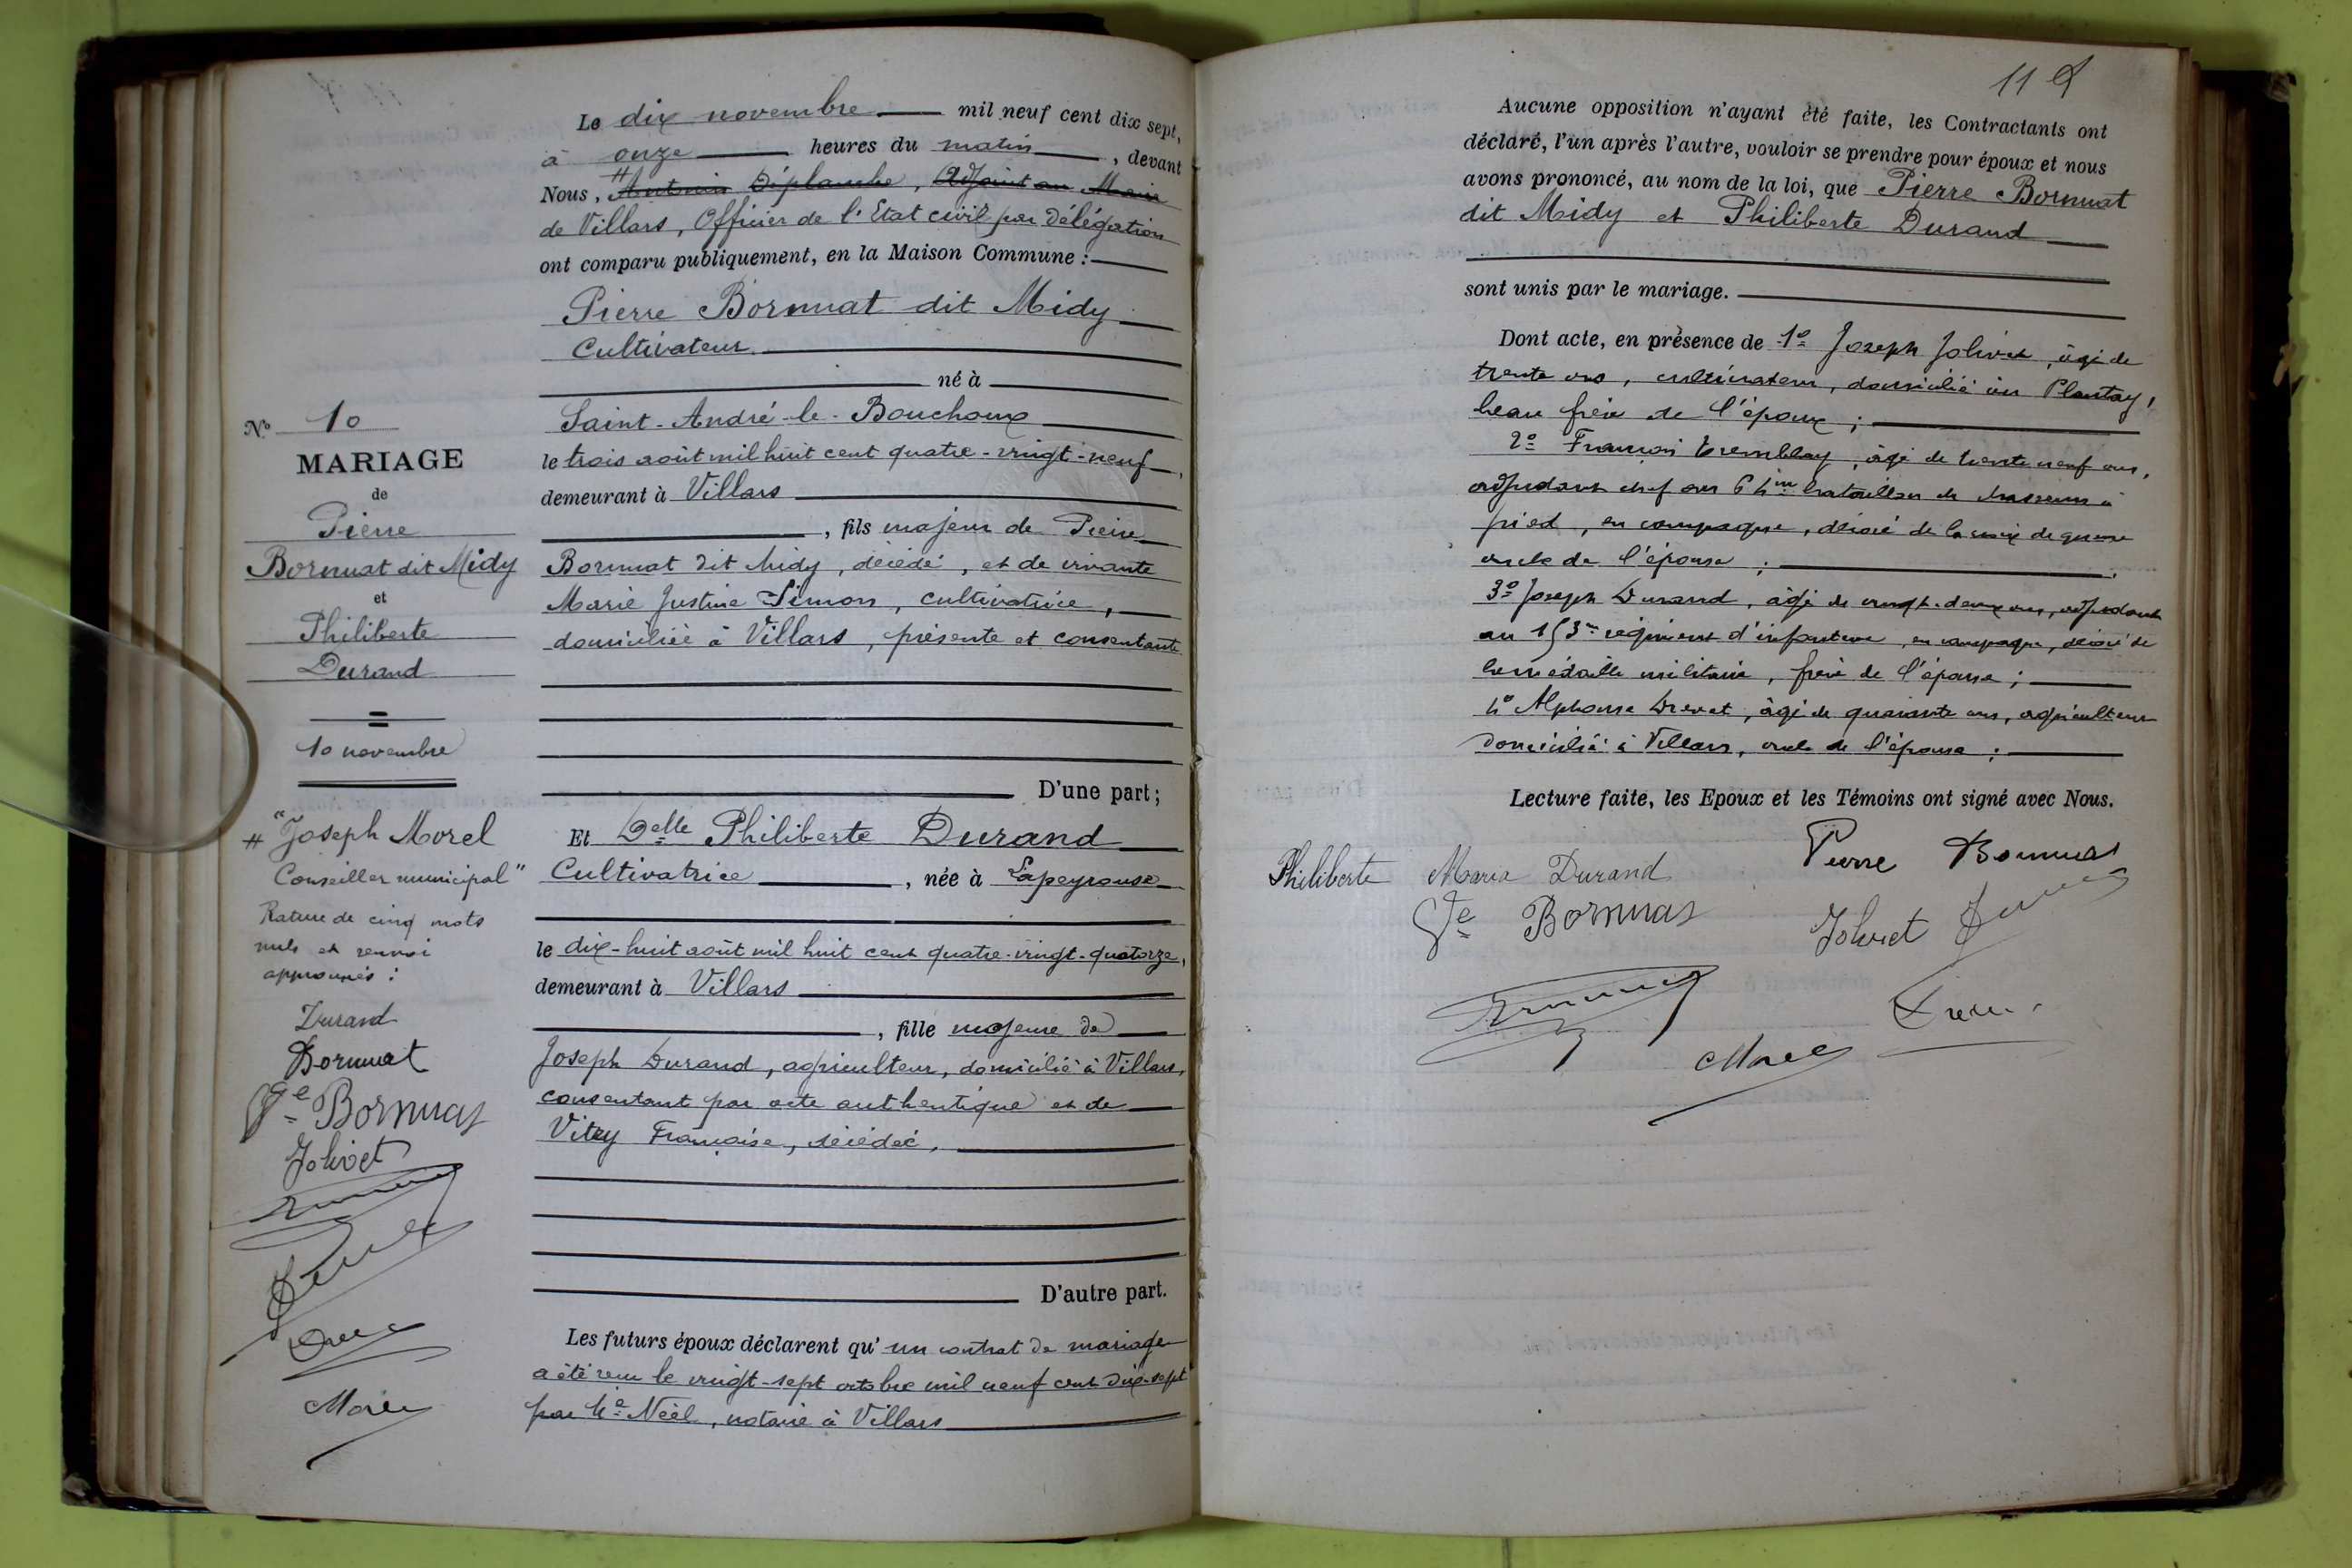 Le dix novembre mil neuf cent dix sept,
à onze heures du matin, devant
Nous, # Antonin Déplanche, Adjoint au Maire
de Villars, Officier de l'Etat civil par délégation
ont comparu publiquement, en la Maison Commune :
Pierre Bornuat dit Midy
Cultivateur
né à
Saint-André-le-Bouchoux
le trois août mil huit cent quatre-vingt-neuf,
demeurant à Villars
, fils majeur de Pierre
Bornuat dit Midy, décédé, et de vivante
Marie Justine Simon, cultivatrice,
domiciliée à Villars, présente et consentante
D'une part ;
Et Delle Philiberte Durand
Cultivatrice, née à Lapeyrouse
le dix-huit août mil huit cent quatre-vingt-quatorze,
demeurant à Villars
, fille majeure de
Joseph Durand, agriculteur, domicilié à Villars,
consentant par acte authentique et de
Vitey Françoise, décédée,
D'autre part.
Les futurs époux déclarent qu'un contrat de mariage
a été reçu le vingt-sept octobre mil neuf cent dix-sept
par Me Néel, notaire à Villars
No 10
MARIAGE
de
Pierre
Bornuat dit Midy
et
Philiberte
Durand
10 novembre
# "Joseph Morel
Conseiller municipal"
Rature de cinq mots
nuls et renvoi
approuvés :
Durand
Bornuat
Ve Bornuat
Jolivet
Morel
11
Aucune opposition n'ayant été faite, les Contractants ont
déclaré, l'un après l'autre, vouloir se prendre pour époux et nous
avons prononcé, au nom de la loi, que Pierre Bornuat
dit Midy et Philiberte Durand
sont unis par le mariage.
Dont acte, en présence de 1o Joseph Jolivet, âgé de
trente ans, cultivateur, domicilié au Plantay,
beau frère de l'époux ;
2o François Tremblay, âgé de trente neuf ans,
adjudant chef au 64me bataillon de chasseurs à
pied, en campagne, décoré de la croix de guerre
oncle de l'épouse ;
3o Joseph Durand, âgé de vingt-deux ans, adjudant
au 153me régiment d'infanterie, en campagne, décoré de
la médaille militaire, frère de l'épouse ;
4o Alphonse Drevet, âgé de quarante ans, agriculteur
domicilié à Villars, oncle de l'épouse ;
Lecture faite, les Epoux et les Témoins ont signé avec Nous.
Philiberte Maria Durand Pierre Bornuat
Ve Bornuat Jolivet
Morel